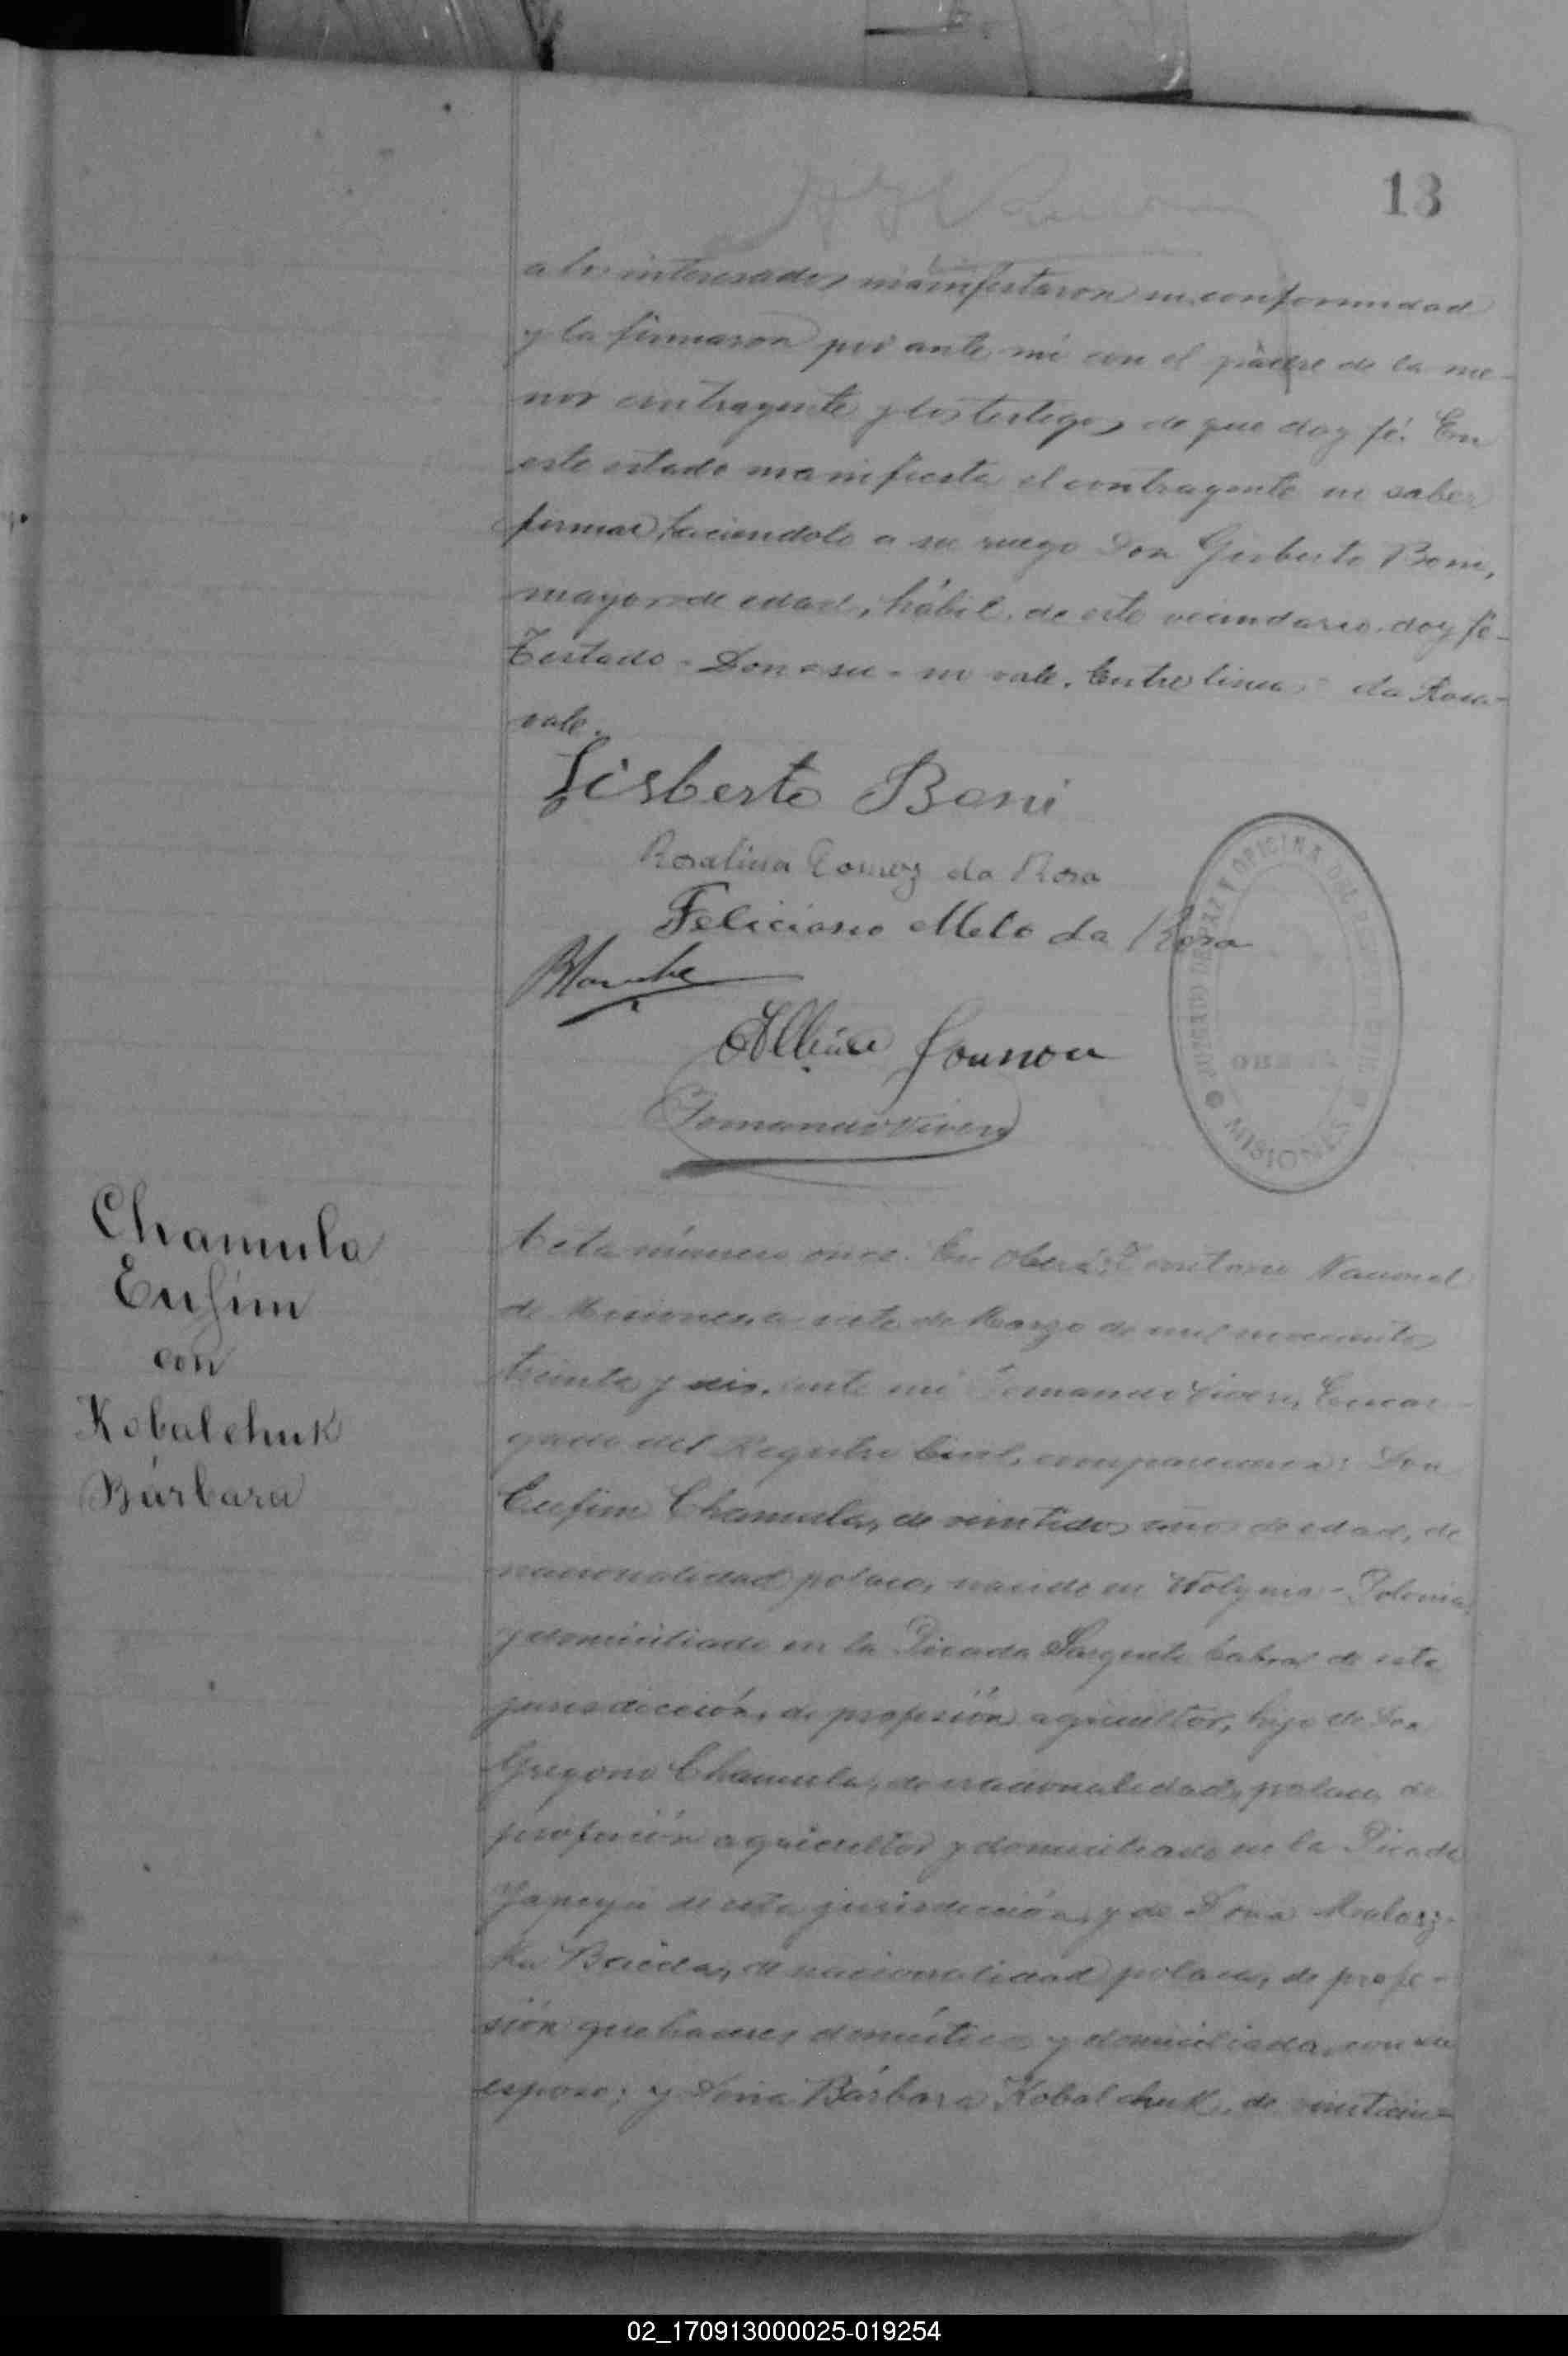 13
a los interesados manifestaron su conformidad
y la firmaron por ante mí con el padre de la me-
nor contrayente y los testigos, de que doy fé. En
este estado manifiesta el contrayente no saber
firmar, haciendolo a su ruego Don Gisberto Boni,
mayor de edad, hábil, de este vecindario, doy fé-
Testado - Don - su - no vale. Entre lineas - da Rosa-
vale.
Gisberto Boni
Rosalina Gomez da Rosa
Feliciano Melo da Rosa
JUZGADO DE PAZ Y OFICINA DEL REGISTRO CIVIL
OBERÁ
MISIONES
Chamula
Eufim
con
Kobalchuk
Bárbara
Acta número once. En Oberá, Territorio Nacional
de Misiones, a siete de Marzo de mil novecientos
treinta y seis, ante mí Encar-
gado del Registro Civil, comparecieron: Don
Eufim Chamula, de veintidos años de edad, de
nacionalidad polaca, nacido en Wolynia - Polonia,
y domiciliado en la Picada Sargento Cabral de esta
jurisdicción, de profesión agricultor, hijo de Don
Gregorio Chamula, de nacionalidad polaca, de
profesión agricultor y domiciliado en la Picada
Yapeyú de esta jurisdicción, y de Doña
de nacionalidad polaca, de profe-
sión quehaceres domésticos y domiciliada con su
esposo; y Doña Bárbara Kobalchuk, de veinticin-
02_170913000025-019254